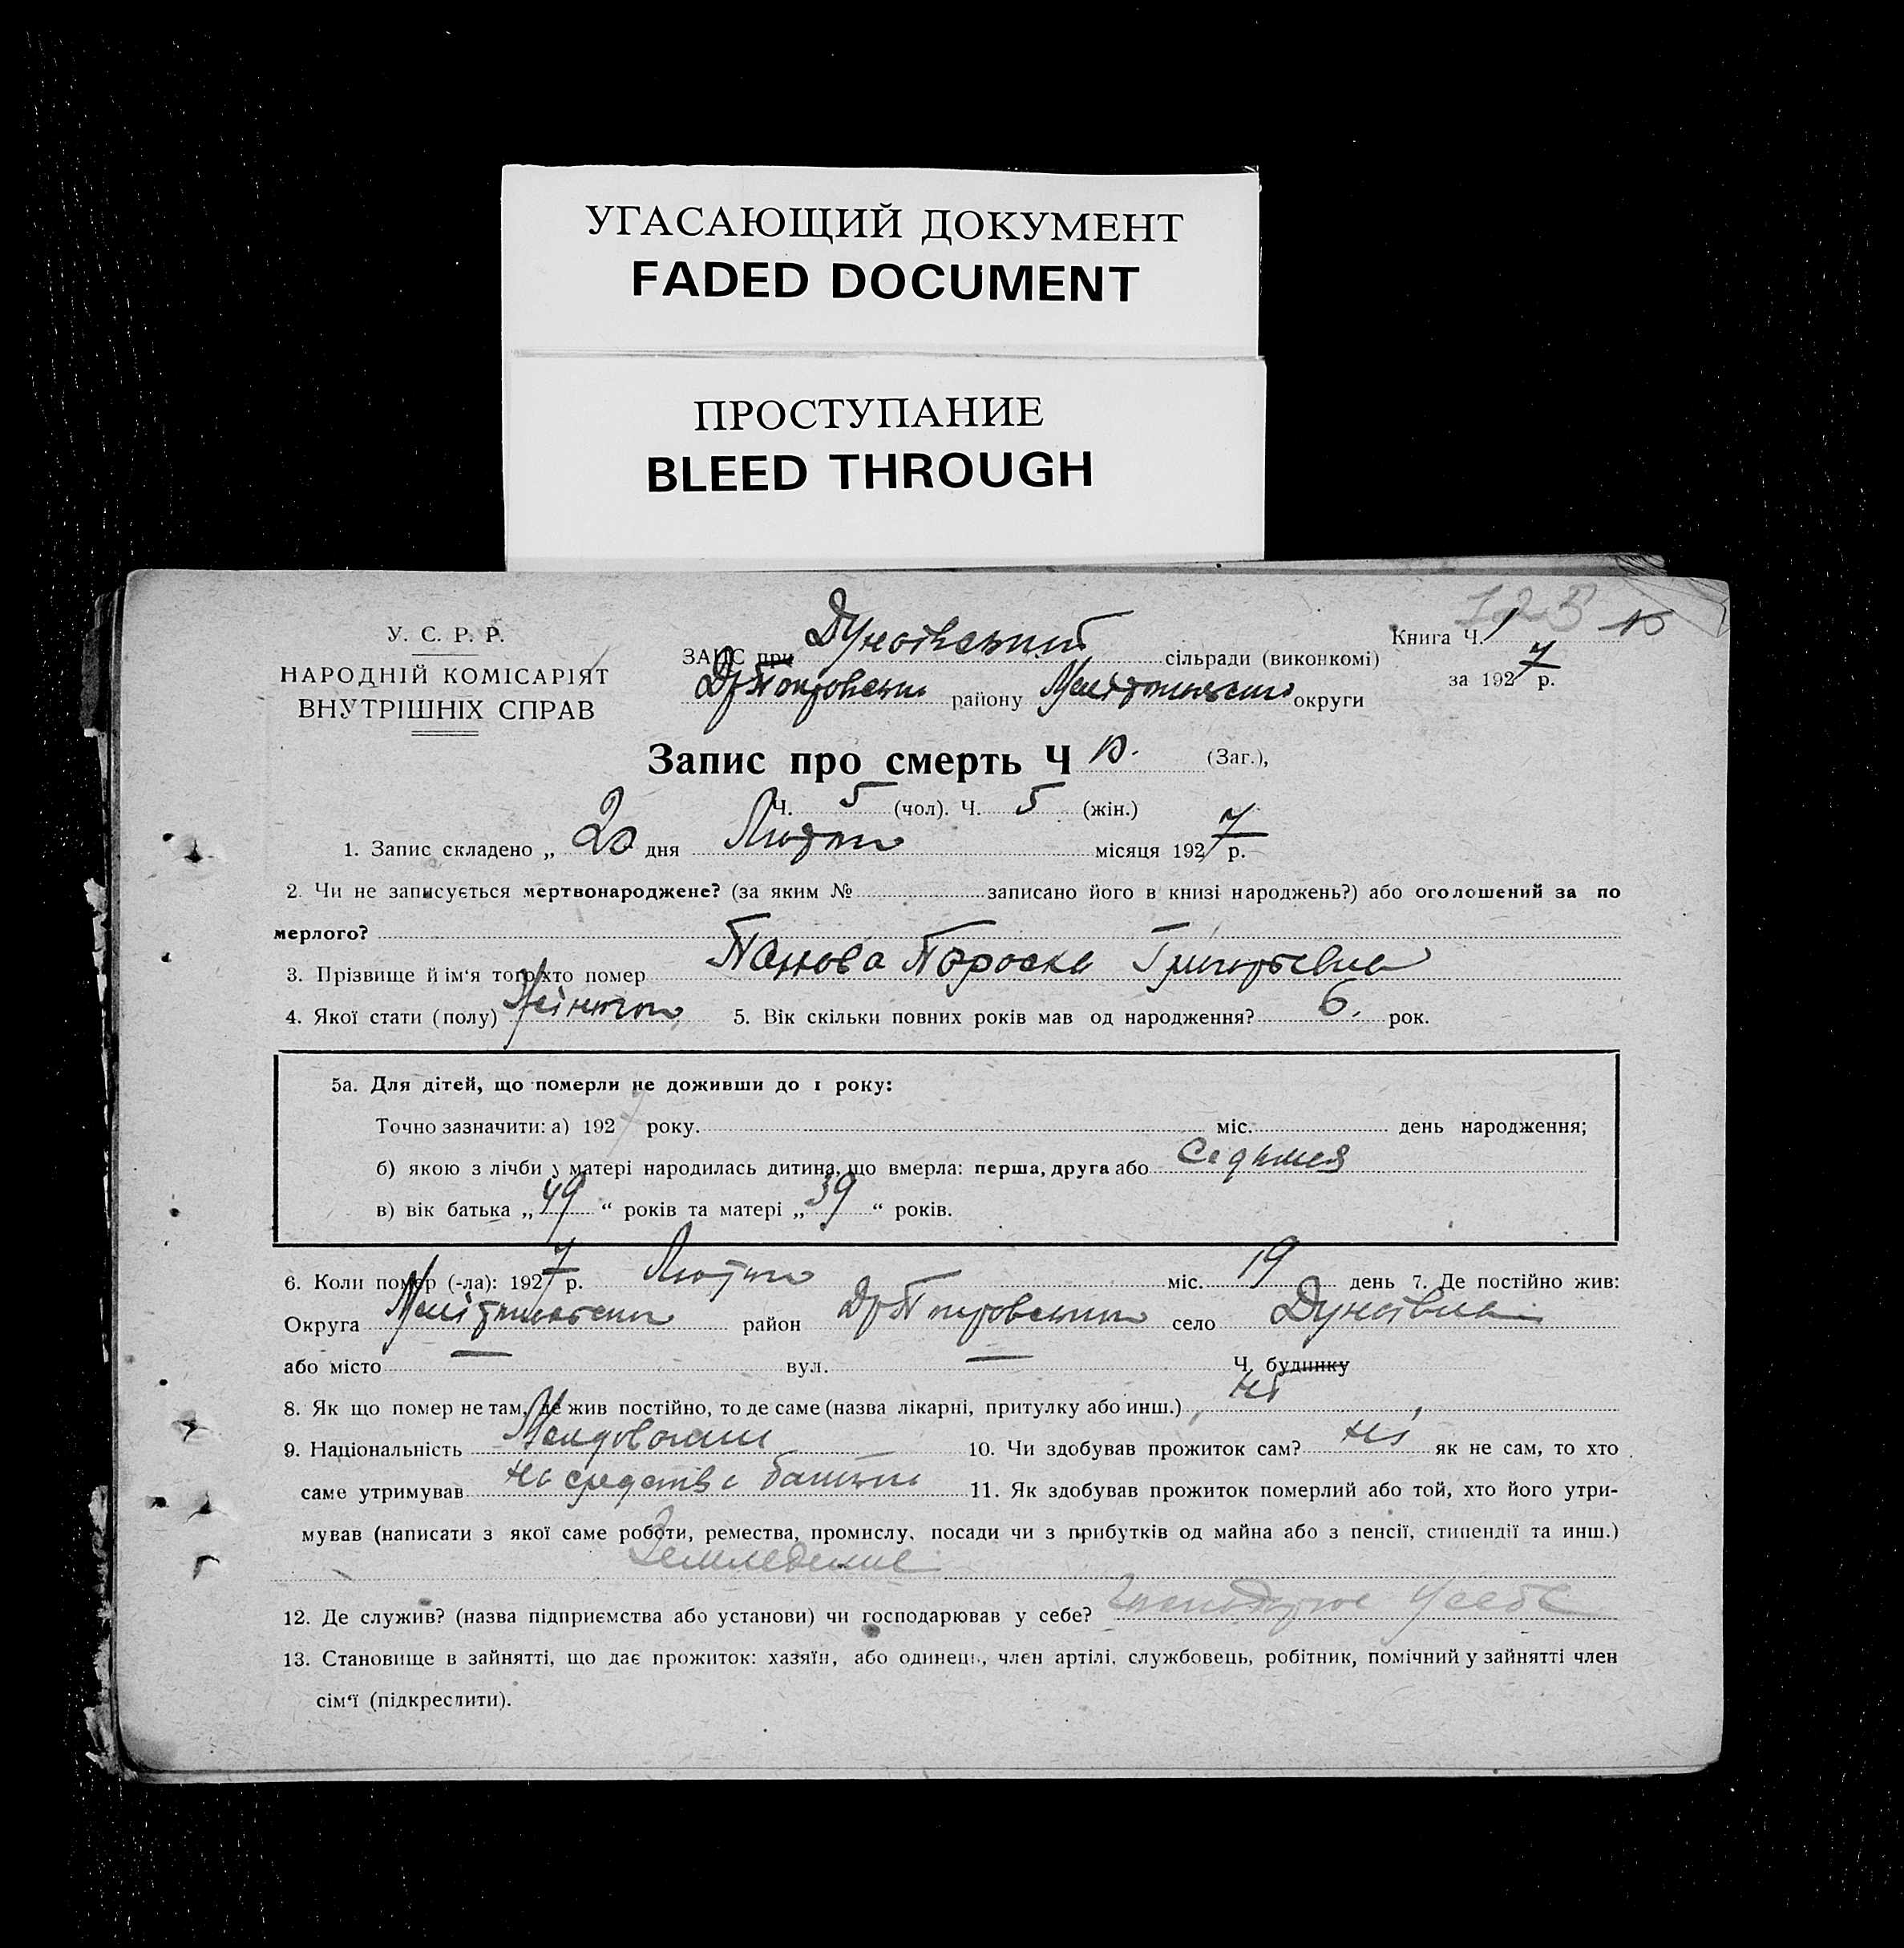 УГАСАЮЩИЙ ДОКУМЕНТ
FADED DOCUMENT
ПРОСТУПАНИЕ
BLEED THROUGH
123
У. С. Р. Р.
НАРОДНІЙ КОМІСАРІЯТ
ВНУТРІШНІХ СПРАВ
ЗАПС при сільради (виконкомі)
району округи
Книга Ч. 1
за 1927 р.
Запис про смерть Ч 10. (Заг.),
Ч. 5 (чол). Ч. 5 (жін.)
1. Запис складено „ 20 дня Лютого місяця 1927 р.
2. Чи не записується мертвонароджене? (за яким № записано його в книзі народжень?) або оголошений за по
мерлого?
3. Прізвище й ім‘я того хто помер Григорьевна
4. Якої стати (полу) Жіночого 5. Вік скільки повних років мав од народження? 6. рок.
5а. Для дітей, що померли не доживши до 1 року:
Точно зазначити: а) 192 року. міс. день народження;
б) якою з лічби у матері народилась дитина, що вмерла: перша, друга або Седьмая
в) вік батька „ 49 “ років та матері „ 39 “ років.
6. Коли помер (-ла): 1927 р. Лютого міс. 19 день 7. Де постійно жив:
Округа район село Дунаївка
або місто — вул. — Ч. будинку
8. Як що помер не там, де жив постійно, то де саме (назва лікарні, притулку або инш.) ні
9. Національність 10. Чи здобував прожиток сам? ні як не сам, то хто
саме утримував на средства батьки 11. Як здобував прожиток померлий або той, хто його утри-
мував (написати з якої саме роботи, ремества, промислу, посади чи з прибутків од майна або з пенсії, стипендії та инш.)
Земледелие
12. Де служив? (назва підприємства або установи) чи господарював у себе? у себе
13. Становище в зайнятті, що дає прожиток: хазяїн, або одинець, член артілі, службовець, робітник, помічний у зайнятті член
сім‘ї (підкреслити).